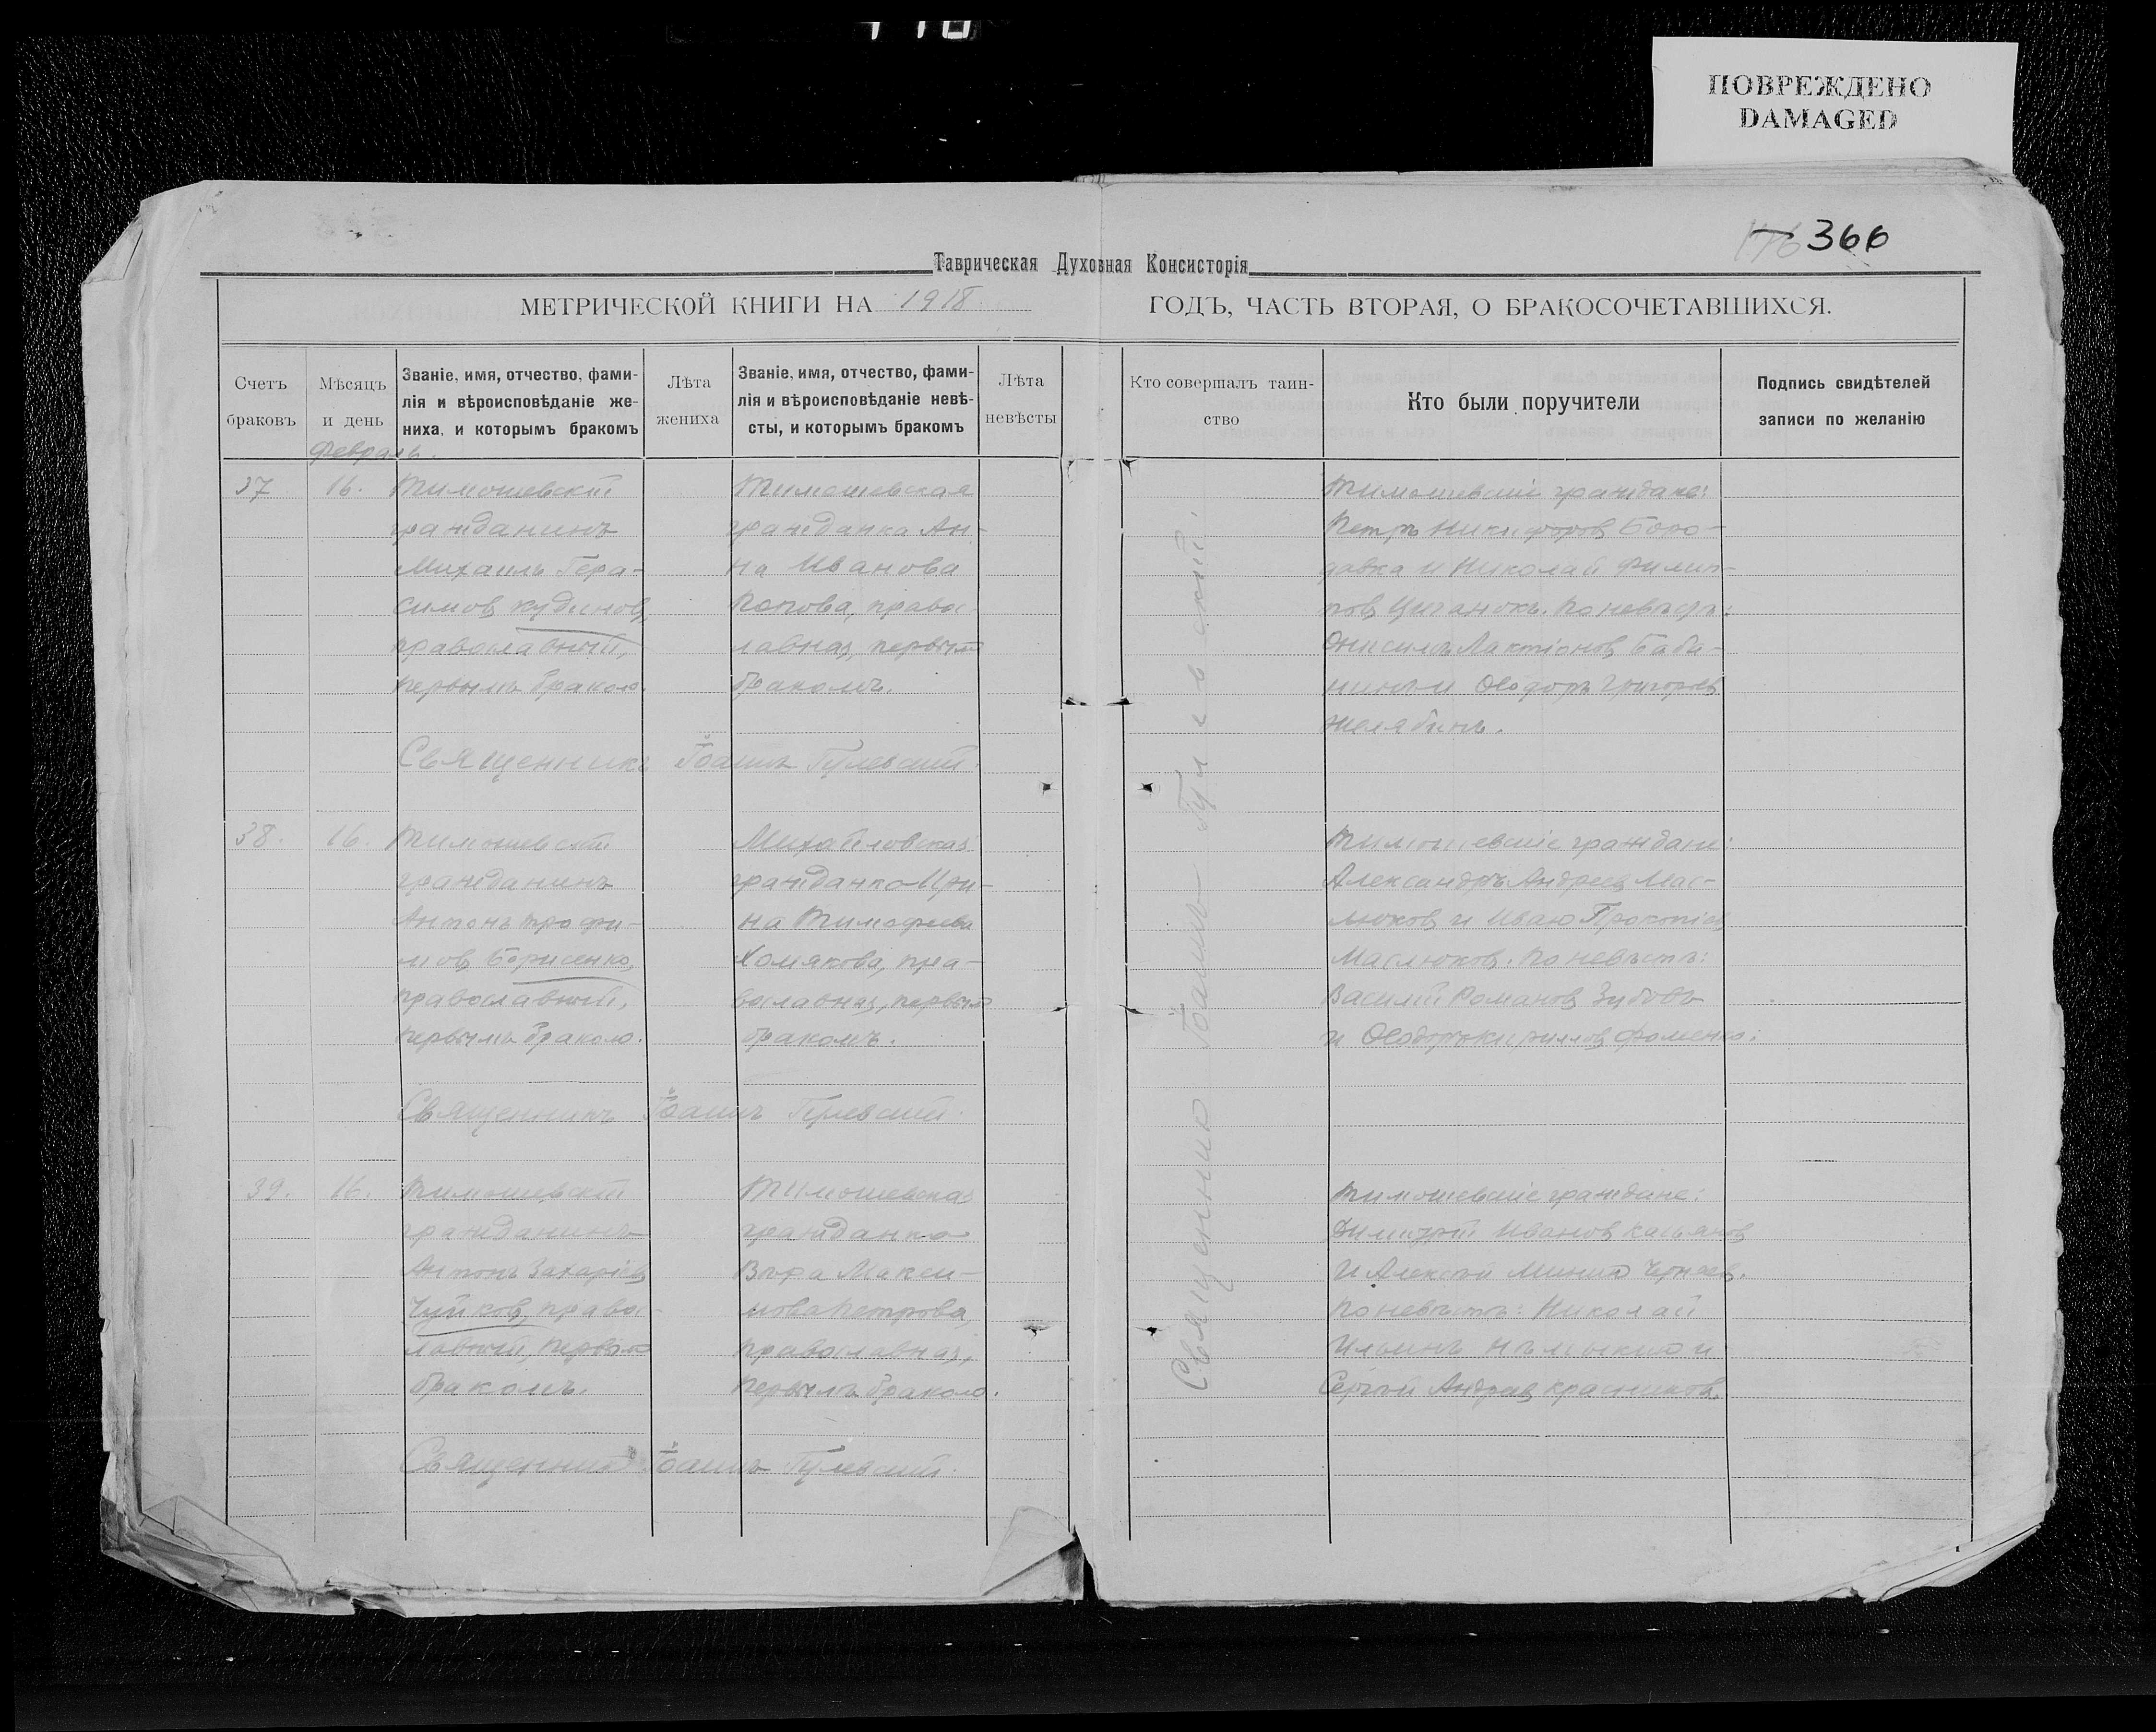 ПОВРЕЖДЕНО
DAMAGED
176 366
Таврическая Духовная Консисторія
МЕТРИЧЕСКОЙ КНИГИ НА 1918 ГОДЪ, ЧАСТЬ ВТОРАЯ, О БРАКОСОЧЕТАВШИХСЯ.
Счетъ
браковъ
Мѣсяцъ
и день
Званіе, имя, отчество, фами-
лія и вѣроисповѣданіе же-
ниха, и которымъ бракомъ
Лѣта
жениха
Званіе, имя, отчество, фами-
лія и вѣроисповѣданіе невѣ-
сты, и которымъ бракомъ
Лѣта
невѣсты
Кто совершалъ таин-
ство
Кто были поручители
Подпись свидѣтелей
записи по желанію
Февраль.
37
16.
Тимошевскій
гражданинъ
Михаилъ Гера-
симов Кудинов,
православный,
первымъ браком.
Тимошевская
гражданка Ан-
на Иванова
Попова, правос-
лавная, первым
бракомъ.
Тимошевскіе граждане:
Петръ Никифоров Боро-
давка и Николай Филип-
пов Цыганокъ. По невѣстѣ:
Онисимъ Лактіонов Баби-
Ѳеодоръ Григорьев
Желябинъ.
Священникъ Іоаннъ Гулевскій.
38.
16.
Тимошевскій
гражданинъ
Антонъ Трофи-
мов Борисенко,
православный,
первымъ браком.
Михайловская
гражданка Ири-
на Тимофеева
Хомякова, пра-
вославная, первым
бракомъ.
Тимошевскіе граждане:
Александръ Андреев Мас-
люков и Иван Прокопіев
Маслюков. По невѣстѣ:
Василій Романов Зубовъ
и Ѳеодоръ Кириллов Фоменко.
Священникъ Іоаннъ Гулевскій.
39.
16.
Тимошевскій
гражданинъ
Антонъ Захаріев
Чуйков, правос-
лавный, первым
бракомъ.
Тимошевская
гражданка
Вѣра Макси-
мова Петрова,
православная,
первымъ браком.
Тимошевскіе граждане:
Димитрій Иванов Касьянов
и Алексѣй Минин
По невѣстѣ: Николай
Ильинъ
Сергѣй Андреев Красников.
Священник Іоаннъ Гулевскій.
Священник Іоаннъ Гулевскій.